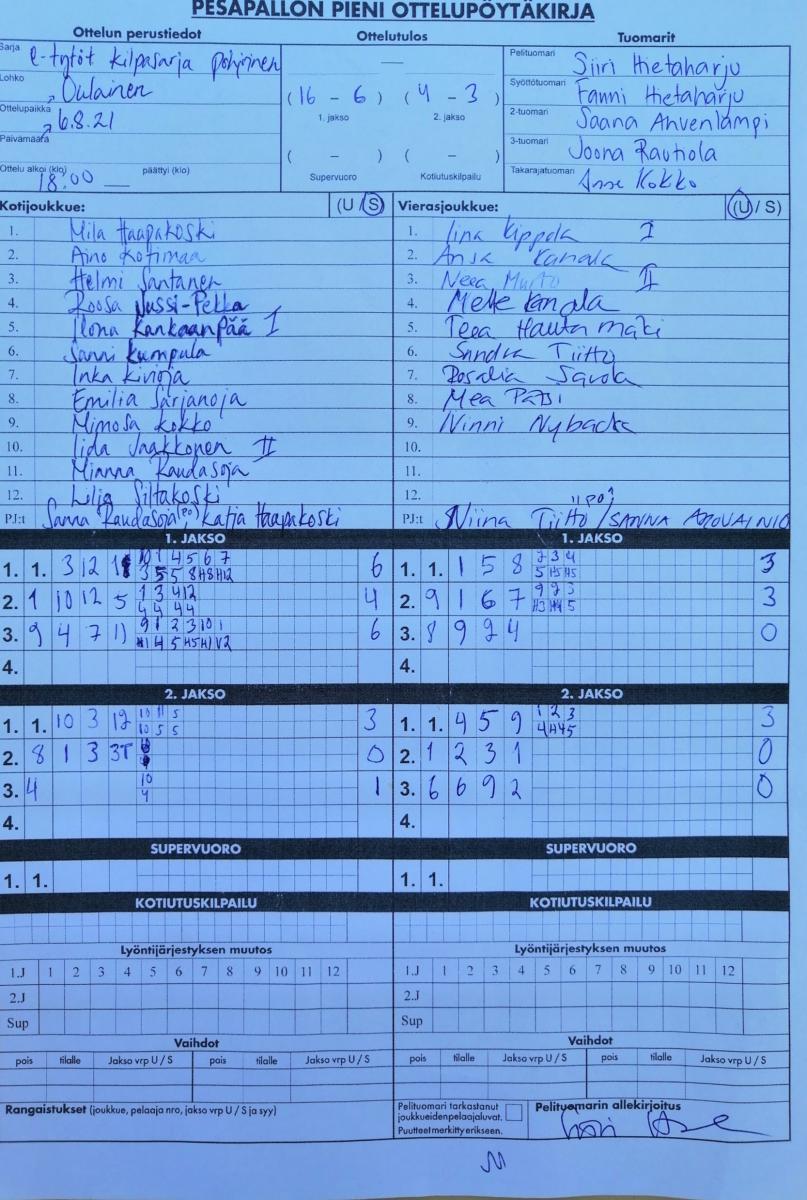 PESÄPALLON PIENI OTTELUPÖYTÄKIRJA
Ottelun perustiedot
Ottelutulos
Tuomarit
Sarja
e-tytöt kilpasarja pohjoinen
Lohko
Oulainen
Ottelupaikka
6.8.21
Päivämäärä
Ottelu alkoi (klo) päättyi (klo)
18:00
(16 - 6) (4 - 3)
1. jakso 2. jakso
( - ) ( - )
Supervuoro Kotiutuskilpailu
Pelituomari Siiri Hietaharju
Syöttötuomari Fanni Hietaharju
2-tuomari Saana Ahvenlampi
3-tuomari Joona Rautiola
Takarajatuomari Anne Kokko
Kotijoukkue: (U / S)
1. Mila Haapakoski
2. Aino Kotimaa
3. Helmi Santanen
4. Roosa Jussi-Pekka
5. Ilona Kankaanpää I
6. Sanni Kumpula
7. Inka Kivioja
8. Emilia Sarjanoja
9. Mimosa Kokko
10. Iida Jaakkonen II
11. Mianna Raudasoja
12. Lilja Siltakoski
PJ:t Sanna Raudasoja (PO), Katja Haapakoski
Vierasjoukkue: (U / S)
1. Iina Kippola I
2. Kanala
3. Neea II
4. Mette Kanala
5. Teea Hautamäki
6. Sandra Tiitto
7. Rosalia Savola
8. Mea
9. Ninni Nybacka
10.
11.
12.
PJ:t Niina Tiitto / SANNA
1. JAKSO
1. 1. 3 12 6
2. 1 10 12 5 4
3. 9 4 7 11 6
4.
1. JAKSO
1. 1. 1 5 8 3
2. 9 1 6 7 3
3. 8 9 2 4 0
4.
2. JAKSO
1. 1. 10 3 12 3
2. 8 1 3 3T 0
3. 4 10 4 1
4.
2. JAKSO
1. 1. 4 5 9 3
2. 1 2 3 1 0
3. 6 6 9 2 0
4.
SUPERVUORO
1. 1.
SUPERVUORO
1. 1.
KOTIUTUSKILPAILU
KOTIUTUSKILPAILU
Lyöntijärjestyksen muutos
1.J 1 2 3 4 5 6 7 8 9 10 11 12
2.J
Sup
Lyöntijärjestyksen muutos
1.J 1 2 3 4 5 6 7 8 9 10 11 12
2.J
Sup
Vaihdot
pois tilalle Jakso vrp U / S pois tilalle Jakso vrp U / S
Vaihdot
pois tilalle Jakso vrp U / S pois tilalle Jakso vrp U / S
Rangaistukset (joukkue, pelaaja nro, jakso vrp U / S ja syy)
Pelituomari tarkastanut
joukkueidenpelaajaluvat.
Puutteet merkitty erikseen.
Pelituomarin allekirjoitus